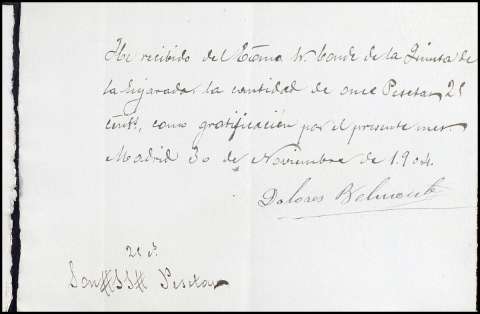 He recibido del Exmo Sr. Conde de la Quinta de
la Enjarada la cantidad de once Pesetas 25
cénts, como gratificación por el presente mes.
Madrid 30 de Noviembre de 1.904.
Dolores Belmonte
25 cs.
Son #11# Pesetas